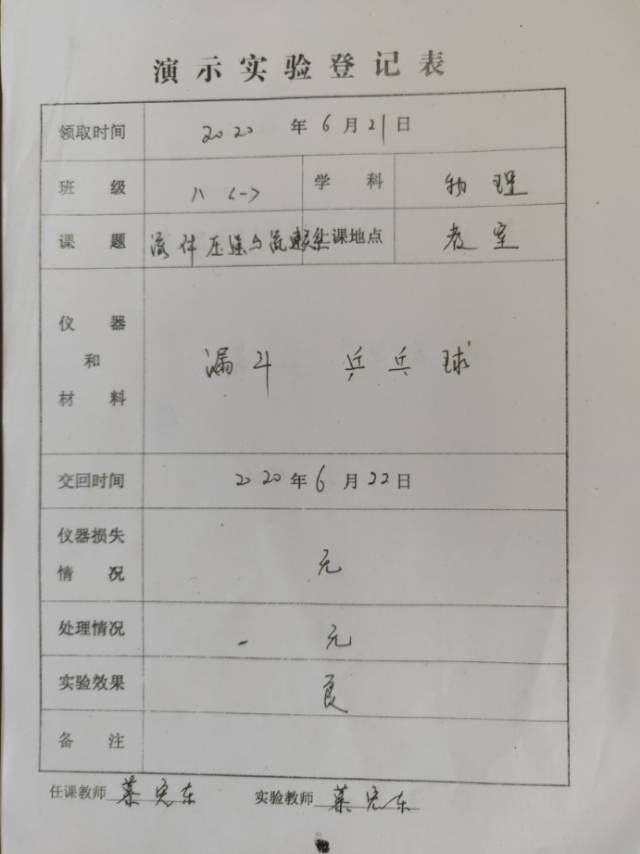 演示实验登记表
领取时间 2020 年 6 月 21 日
班 级 八(一) 学 科 物 理
课 题 流体压强与流速关系 上课地点 教 室
仪 器
和 漏斗 乒乓球
材 料
交回时间 2020 年 6 月 22 日
仪器损失
情 况 元
处理情况 元
实验效果 良
备 注
任课教师 宏东 实验教师 宏东